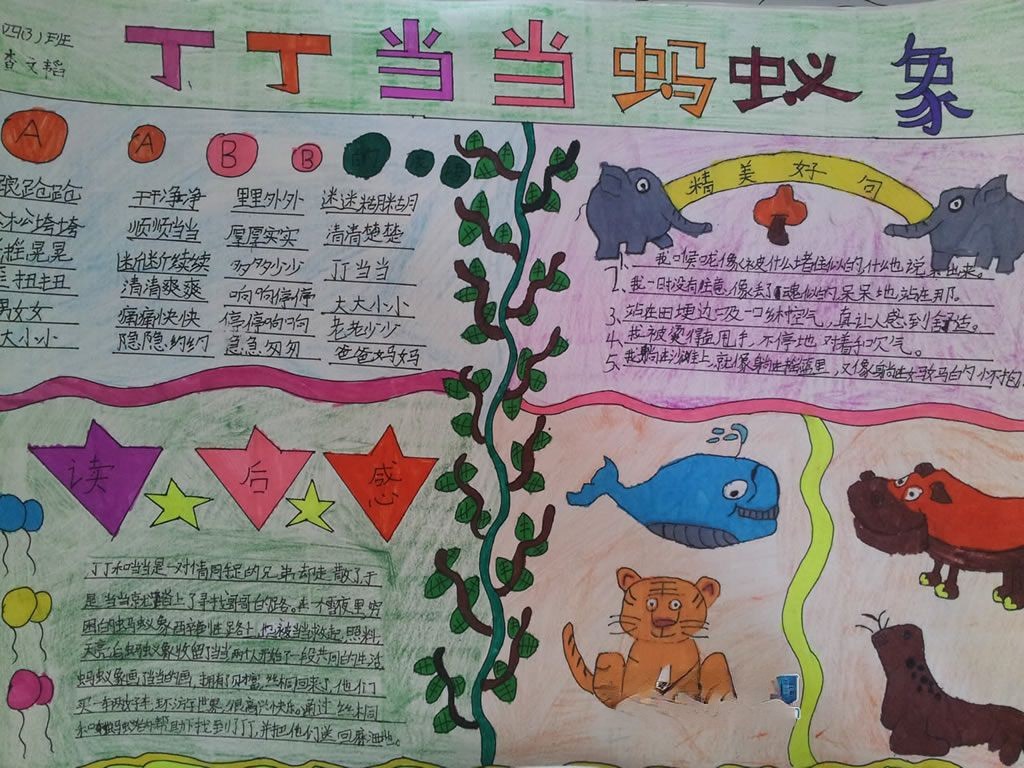 四(3)班
查文韬
丁丁当当蚂蚁象
A A B B 的
跄跄 干干净净 里里外外 迷迷糊糊
松垮垮 顺顺当当 厚厚实实 清清楚楚
摇晃晃 断断续续 多多少少 丁丁当当
扭扭 清清爽爽 响响停停 大大小小
男女女 痛痛快快 停停响响 老老少少
大小小 隐隐约约 急急匆匆 爸爸妈妈
精美好句
1、我喉咙像被什么堵住似的,什么也说不出来。
2、我一时没有注意,像丢了魂似的呆呆地站在那。
3、站在田埂边吸一口新鲜空气,真让人感到舒适。
4、我被烫得直甩手,不停地对着和吹气。
5、我躺在沙滩上,就像躺在摇篮里,又像躺在妈妈的怀抱
读后感
丁丁和当当是一对情同手足的兄弟却走散了于
是当当就踏上了寻找哥哥的征途。在一个雪夜里穷
困的蚂蚁象西辞在路上,他被当当救起,照料
天亮后蚂蚁象收留了当当两人开始了一段共同的生活
蚂蚁象画了当当的画,拥有了财富,丝桐回来了,他们
买一车两好车,环访车世界,很高兴快乐。通过丝桐
和蚂蚁象的帮助下找到了丁丁,并把他们送回麻油地。